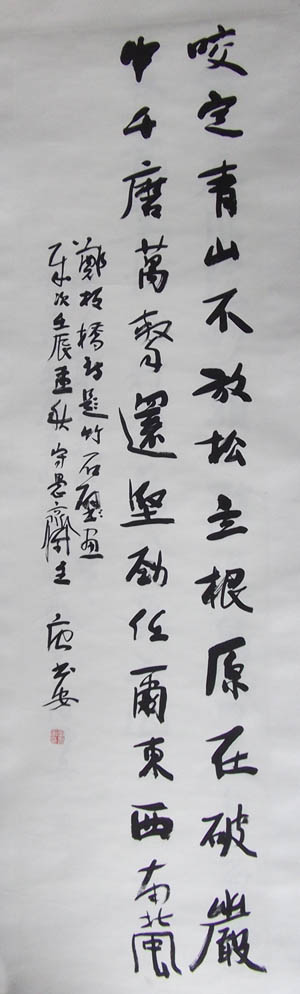 咬定青山不放松立根原在破巖
中千磨萬擊還堅勁任爾東西南北風
鄭板橋詩題竹石壁畫
歲次壬辰孟秋守愚齋主 唐書安